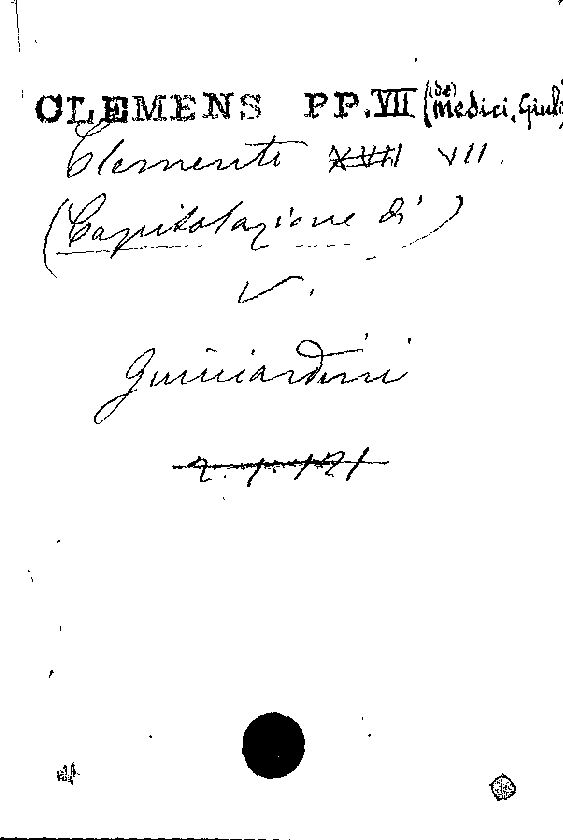 CLEMENS PP. VII (de' Medici, Giuli
Clemente XVII VII.
(Capitolazione di)
V.
Guicciardini